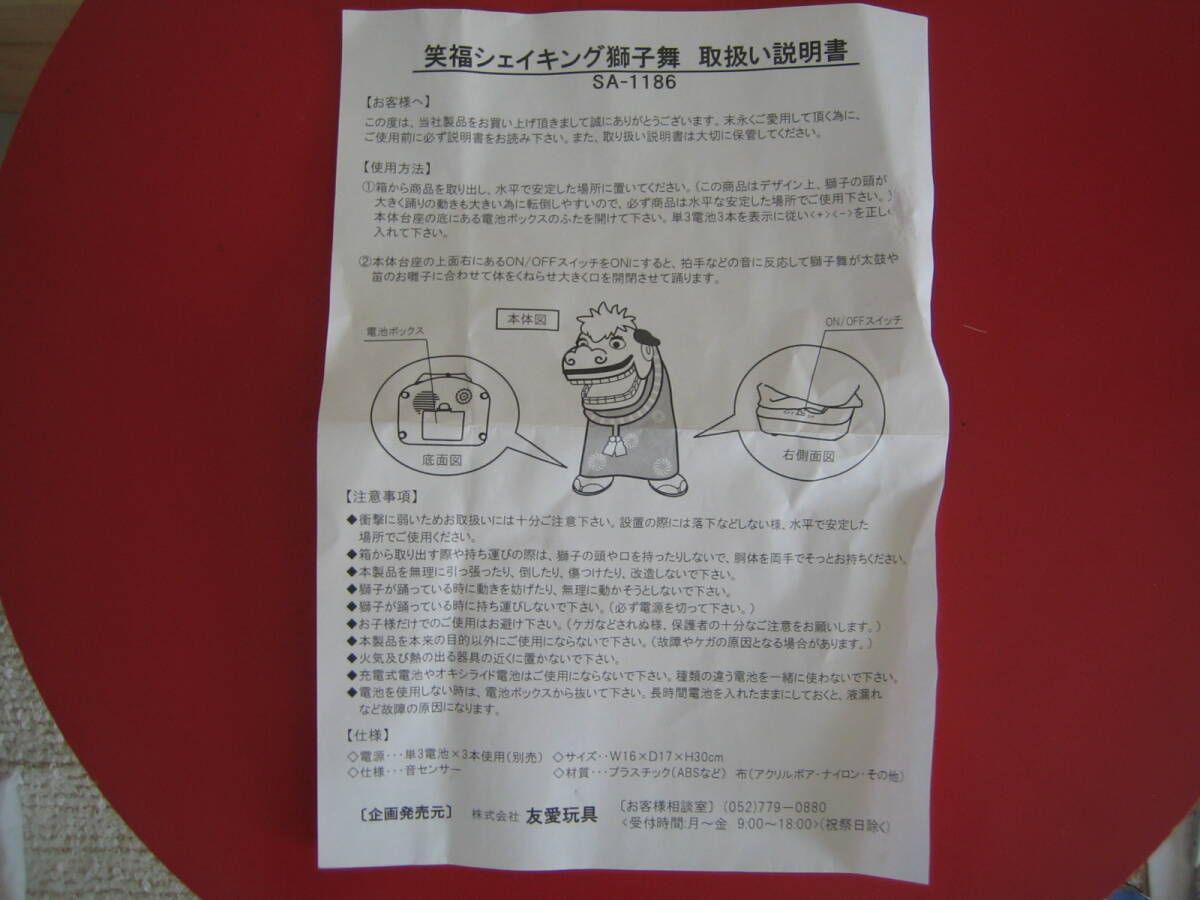 笑福シェイキング獅子舞 取扱い説明書
SA-1186
【お客様へ】
この度は、当社製品をお買い上げ頂きまして誠にありがとうございます。末永くご愛用して頂く為に、
ご使用前に必ず説明書をお読み下さい。また、取り扱い説明書は大切に保管してください。
【使用方法】
①箱から商品を取り出し、水平で安定した場所に置いてください。(この商品はデザイン上、獅子の頭が
大きく踊りの動きも大きい為に転倒しやすいので、必ず商品は水平な安定した場所でご使用下さい。)
本体台座の底にある電池ボックスのふたを開けて下さい。単3電池3本を表示に従い<+><->を正しく
入れて下さい。
②本体台座の上面右にあるON/OFFスイッチをONにすると、拍手などの音に反応して獅子舞が太鼓や
笛のお囃子に合わせて体をくねらせ大きく口を開閉させて踊ります。
本体図
電池ボックス
ON/OFFスイッチ
底面図
右側面図
【注意事項】
◆衝撃に弱いためお取扱いには十分ご注意下さい。設置の際には落下などしない様、水平で安定した
場所でご使用ください。
◆箱から取り出す際や持ち運びの際は、獅子の頭や口を持ったりしないで、胴体を両手でそっとお持ちください。
◆本製品を無理に引っ張ったり、倒したり、傷つけたり、改造しないで下さい。
◆獅子が踊っている時に動きを妨げたり、無理に動かそうとしないで下さい。
◆獅子が踊っている時に持ち運びしないで下さい。(必ず電源を切って下さい。)
◆お子様だけでのご使用はお避け下さい。(ケガなどされぬ様、保護者の十分なご注意をお願いします。)
◆本製品を本来の目的以外にご使用にならないで下さい。(故障やケガの原因となる場合があります。)
◆火気及び熱の出る器具の近くに置かないで下さい。
◆充電式電池やオキシライド電池はご使用にならないで下さい。種類の違う電池を一緒に使わないで下さい。
◆電池を使用しない時は、電池ボックスから抜いて下さい。長時間電池を入れたままにしておくと、液漏れ
など故障の原因になります。
【仕様】
◇電源・・・単3電池×3本使用(別売) ◇サイズ・・W16×D17×H30cm
◇仕様・・・音センサー ◇材質・・・プラスチック(ABSなど) 布(アクリルボア・ナイロン・その他)
［企画発売元］ 株式会社 友愛玩具 〔お客様相談室〕 (052)779-0880
<受付時間:月～金 9:00～18:00>(祝祭日除く)